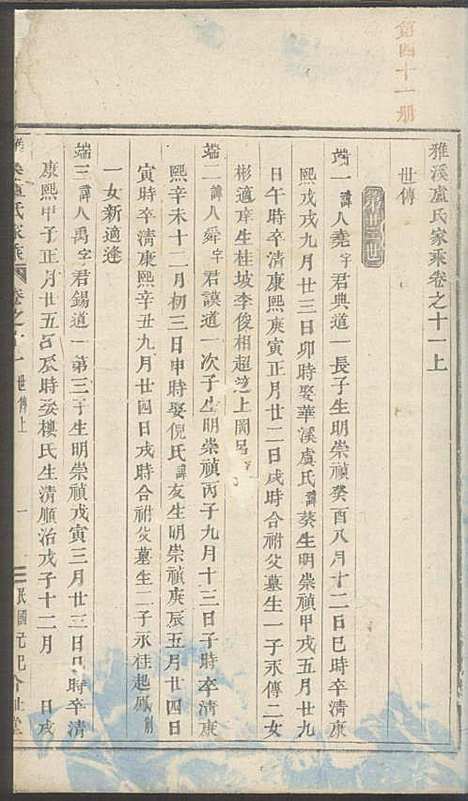 第四十一册
雅溪盧氏家乘卷之十一上
世傳
第廿三世
端一諱人堯字君典道一長子生明崇禎癸酉八月十二日巳時卒清康
熙戊戌九月廿三日卯時娶華溪盧氏諱葵生明崇禎甲戌五月廿九
日午時卒清康熙庚寅正月廿二日戌時合祔父墓生一子永傳二女
彬適庠生桂坡李俊相超適上閣呂
端二諱人舜字君謨道一次子生明崇禎丙子九月十三日子時卒清康
熙辛未十二月初三日申時娶倪氏諱友生明崇禎庚辰五月廿四日
寅時卒清康熙辛丑九月廿四日戌時合祔父墓生二子永桂起鳳
一女新適逢
端三諱人禹字君錫道一第三子生明崇禎戊寅三月廿三日時卒清
康熙甲子正月廿五日辰時娶樓氏生清順治戊子十二月 日戌
溪盧氏家乘 卷之十一 世傳上 一 民國